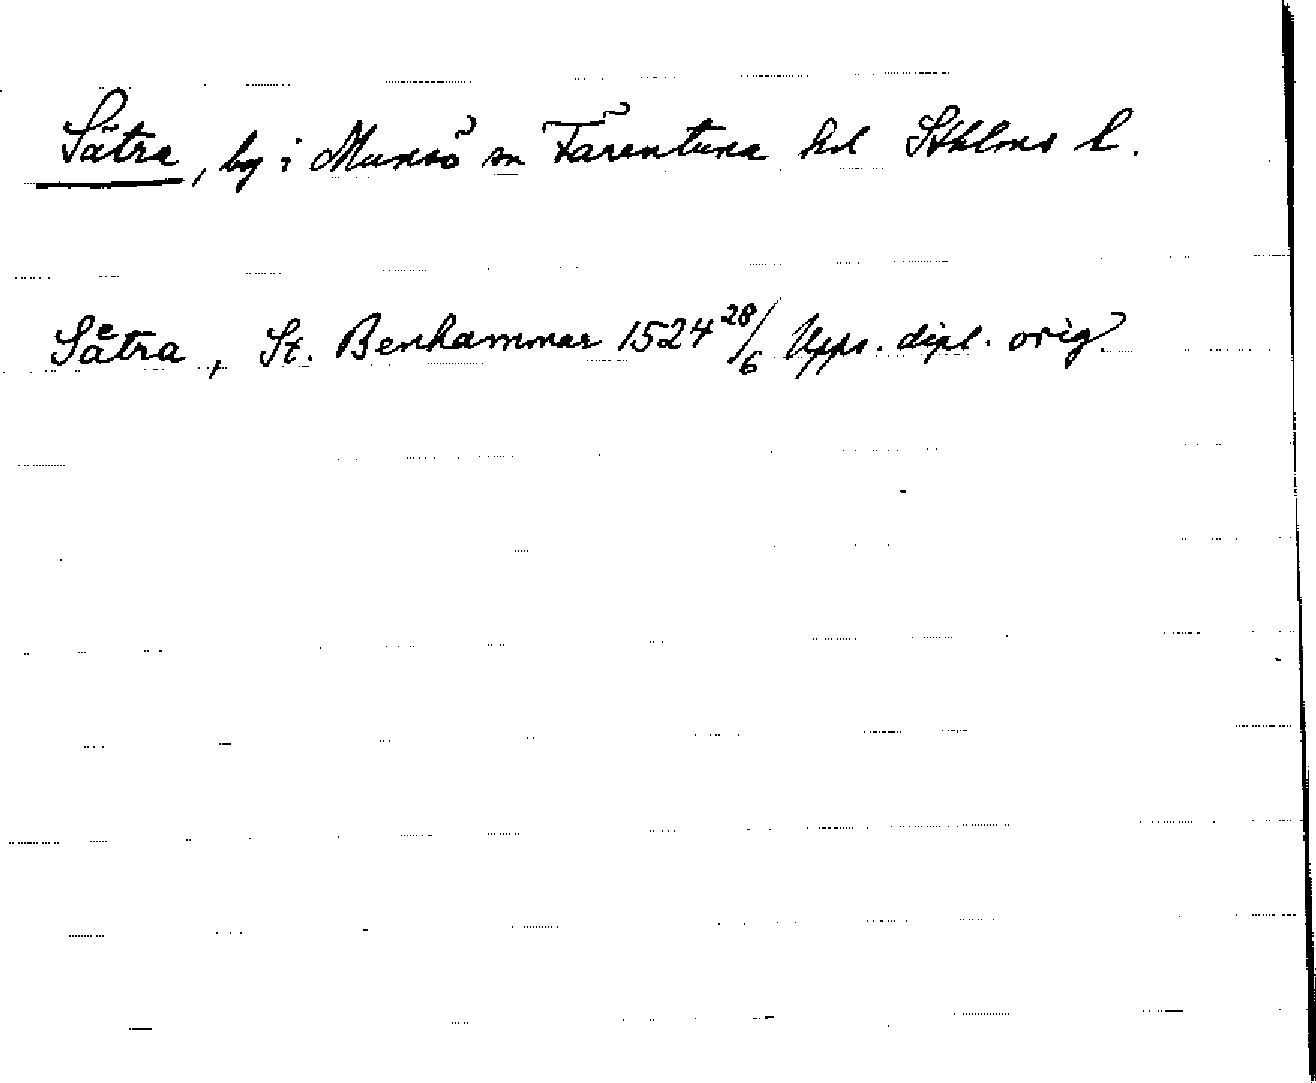 Sätra, by i Munsö sn Färentuna hd Sthlms l.
Såtra, St. Benhammar 1524 28/6 Upps. dipl. orig.